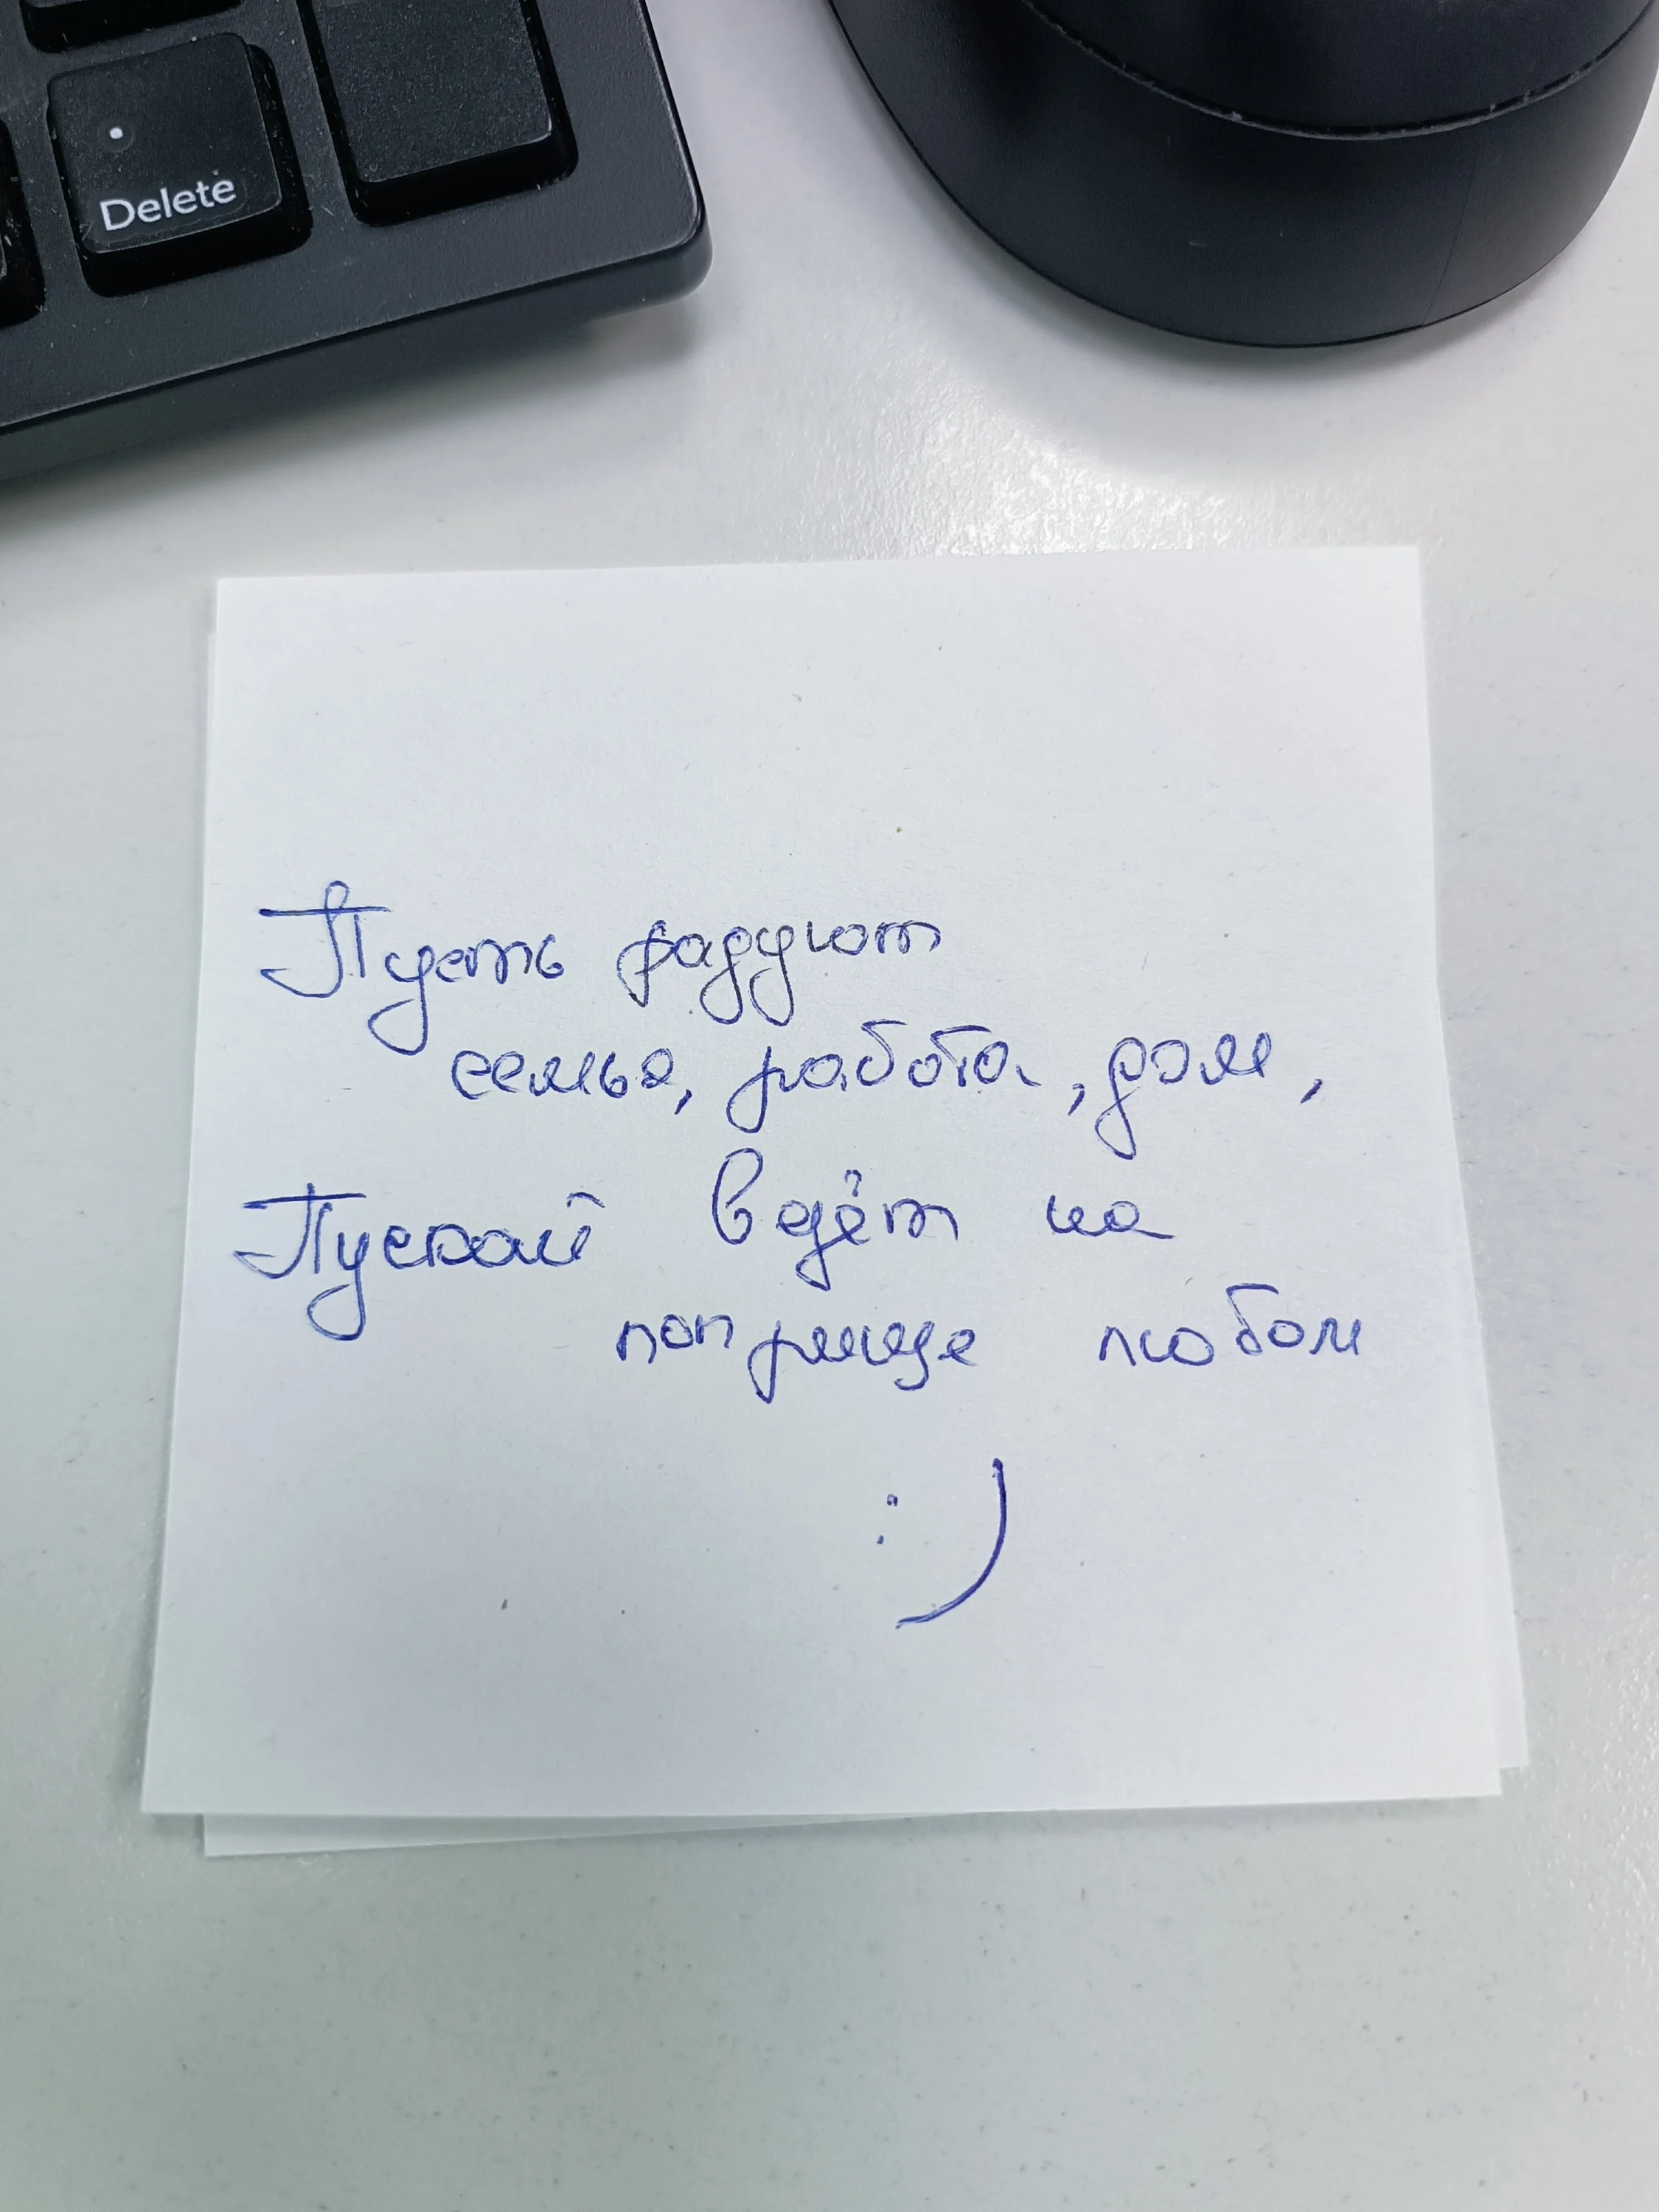 Delete
Пусть радуют
семья, работа, дом,
Пускай ведёт на
поприще любом
:)